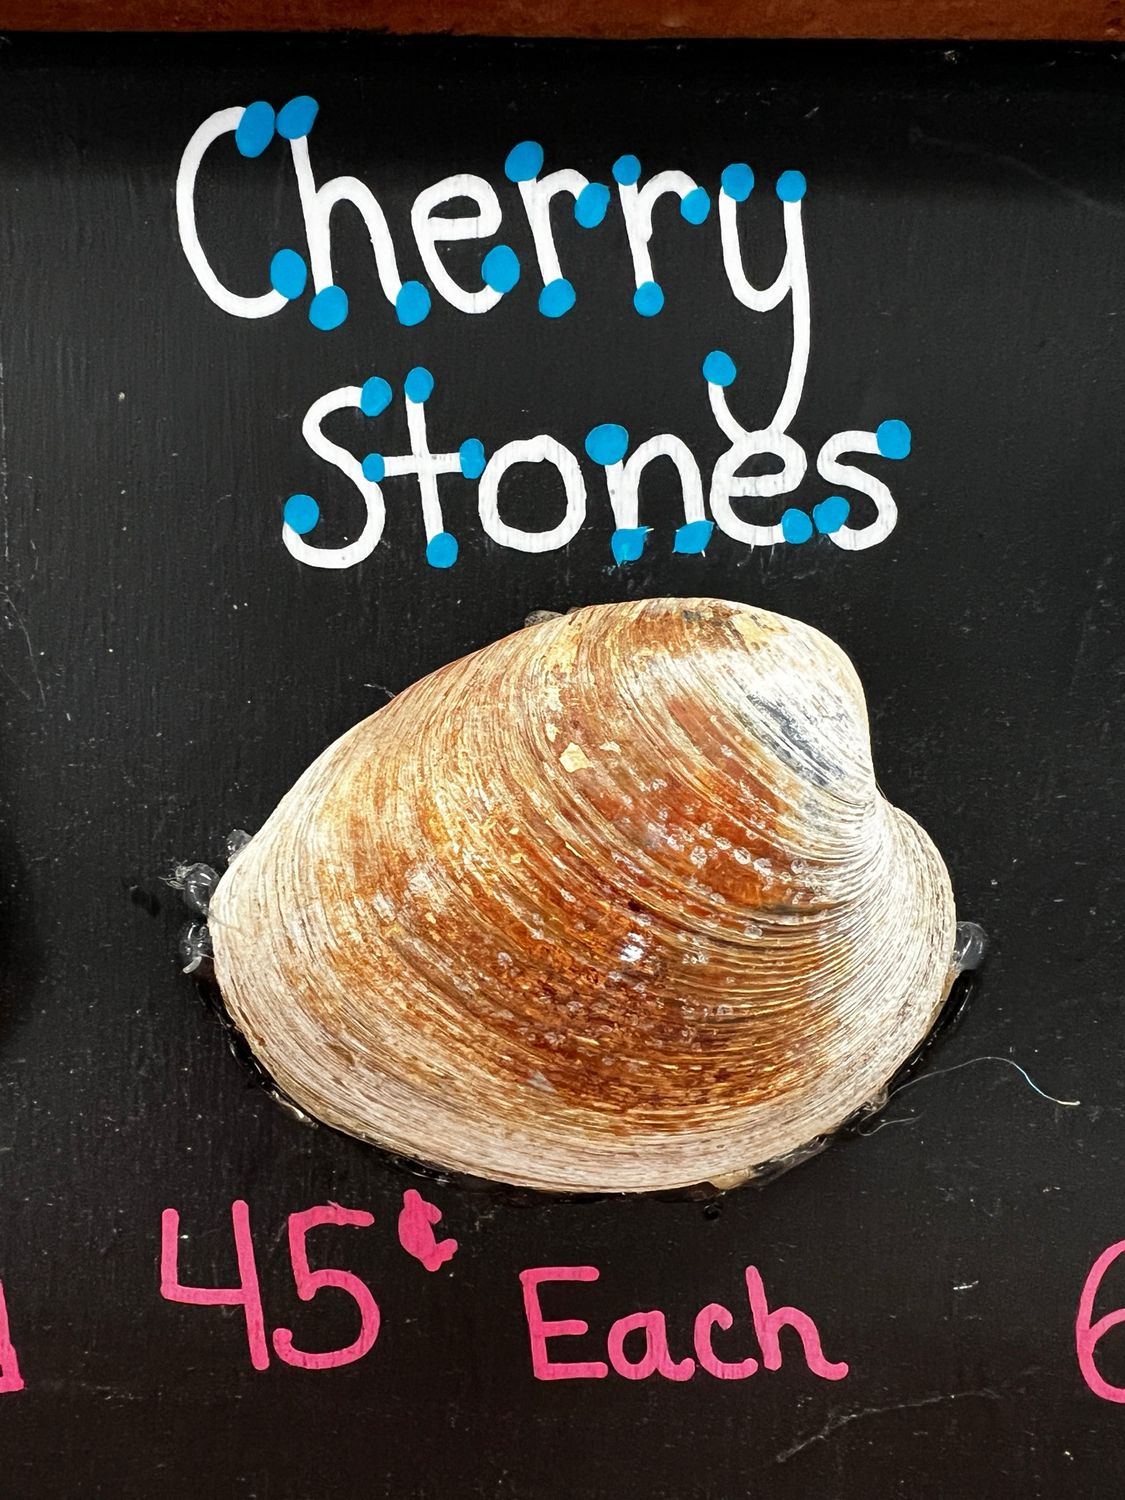 Cherry
Stones
45¢ Each
6